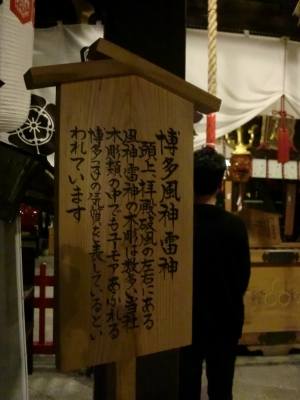 博多風神 雷神
頭上、拝殿破風の左右にある
風神 雷神の木彫は数多い当社
木彫類の中でもユーモアあふれる
博多っ子の気質を表しているとい
われています